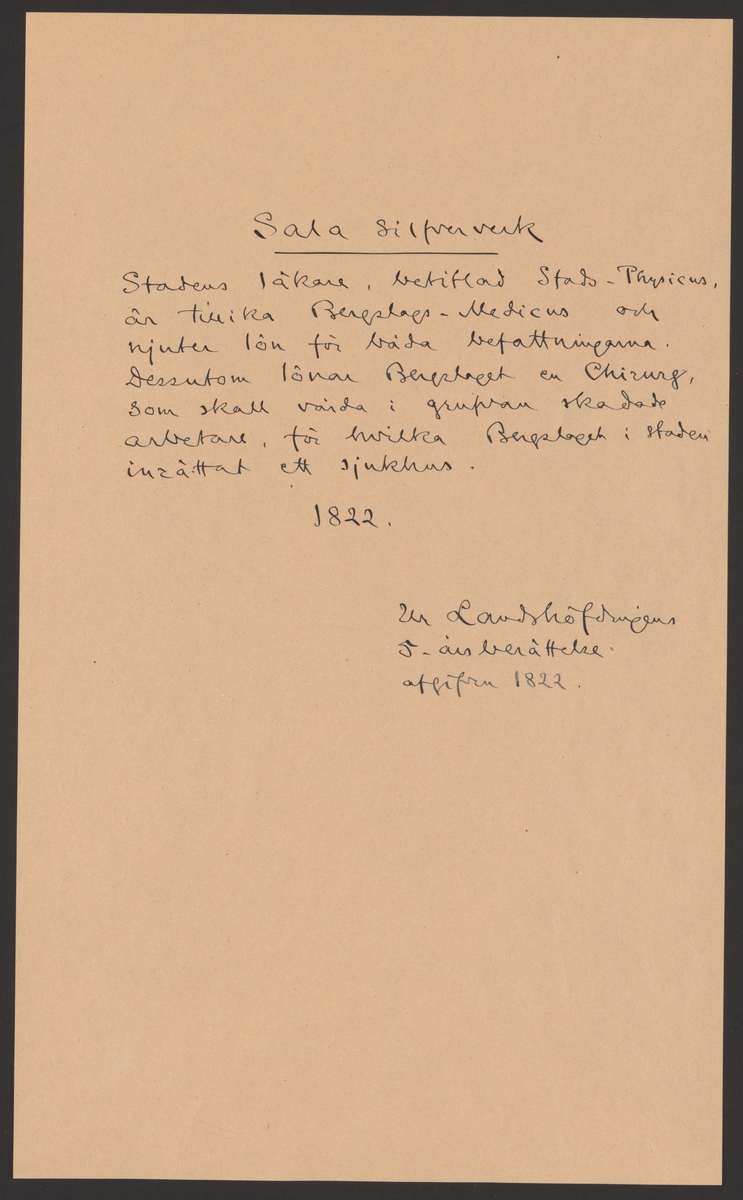 Sala Silfververk
Stadens läkare, betitlad Stads-Physicus,
är tillika Bergslags-Medicus och
njuter lön för båda befattningarna.
Dessutom lönar Bergslaget en Chirurg,
som skall vårda i grufvan skadade
arbetare, för hvilka Bergslaget i staden
inrättat ett sjukhus.
1822.
Ur Landshöfdingens
5-årsberättelse.
afgifven 1822.